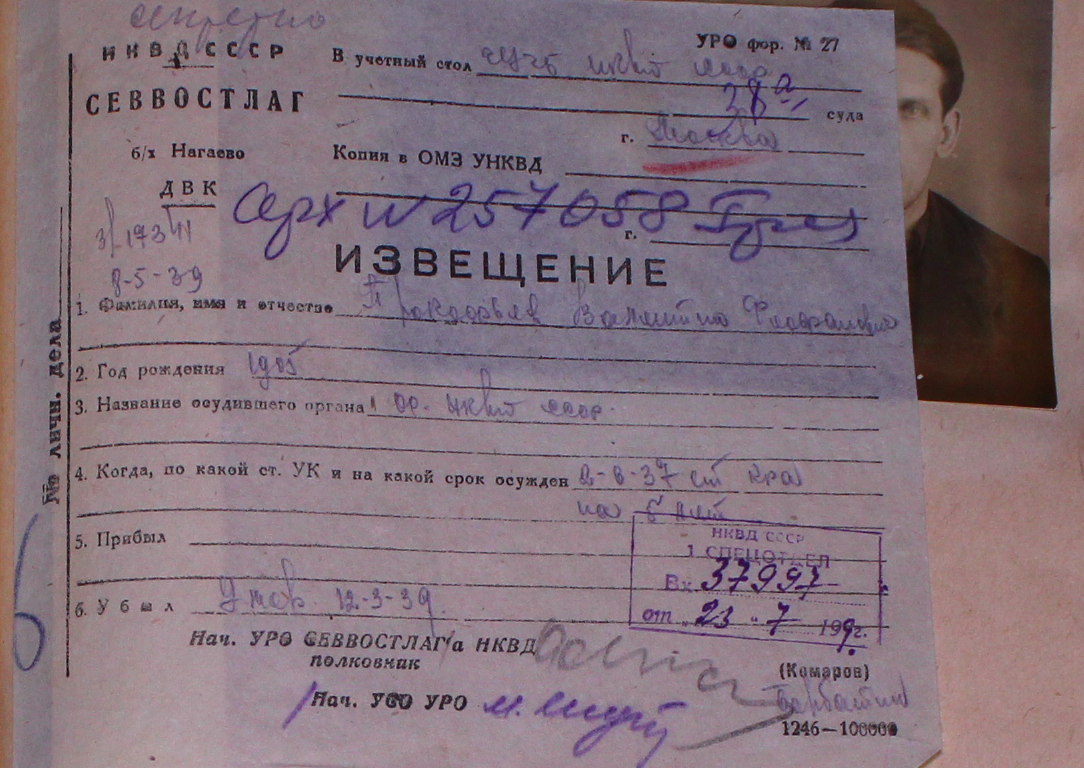 секретно
НКВД СССР
В учетный стол
УРО фор. № 27
НКВД СССР
СЕВВОСТЛАГ
38
суда
г. Москва
б/х Нагаево
Копия в ОМЗ УНКВД
ДВК
Арх № 257058
г.
ИЗВЕЩЕНИЕ
8-5-39
1. Фамилия, имя и отчество Прокофьев Валентин
2. Год рождения 1905
3. Название осудившего органа ос. НКВД СССР
4. Когда, по какой ст. УК и на какой срок осужден 2-8-37 ст кра
на 5 лет
НКВД СССР
1 СПЕЦОТДЕЛ
5. Прибыл
Вх. 37997
6. Убыл Умер 12-3-39
от "23" 7 1939г.
№ личн. дела
Нач. УРО СЕВВОСТЛАГ'а НКВД
полковник
(Комаров)
Нач. УСО УРО
1246—100000